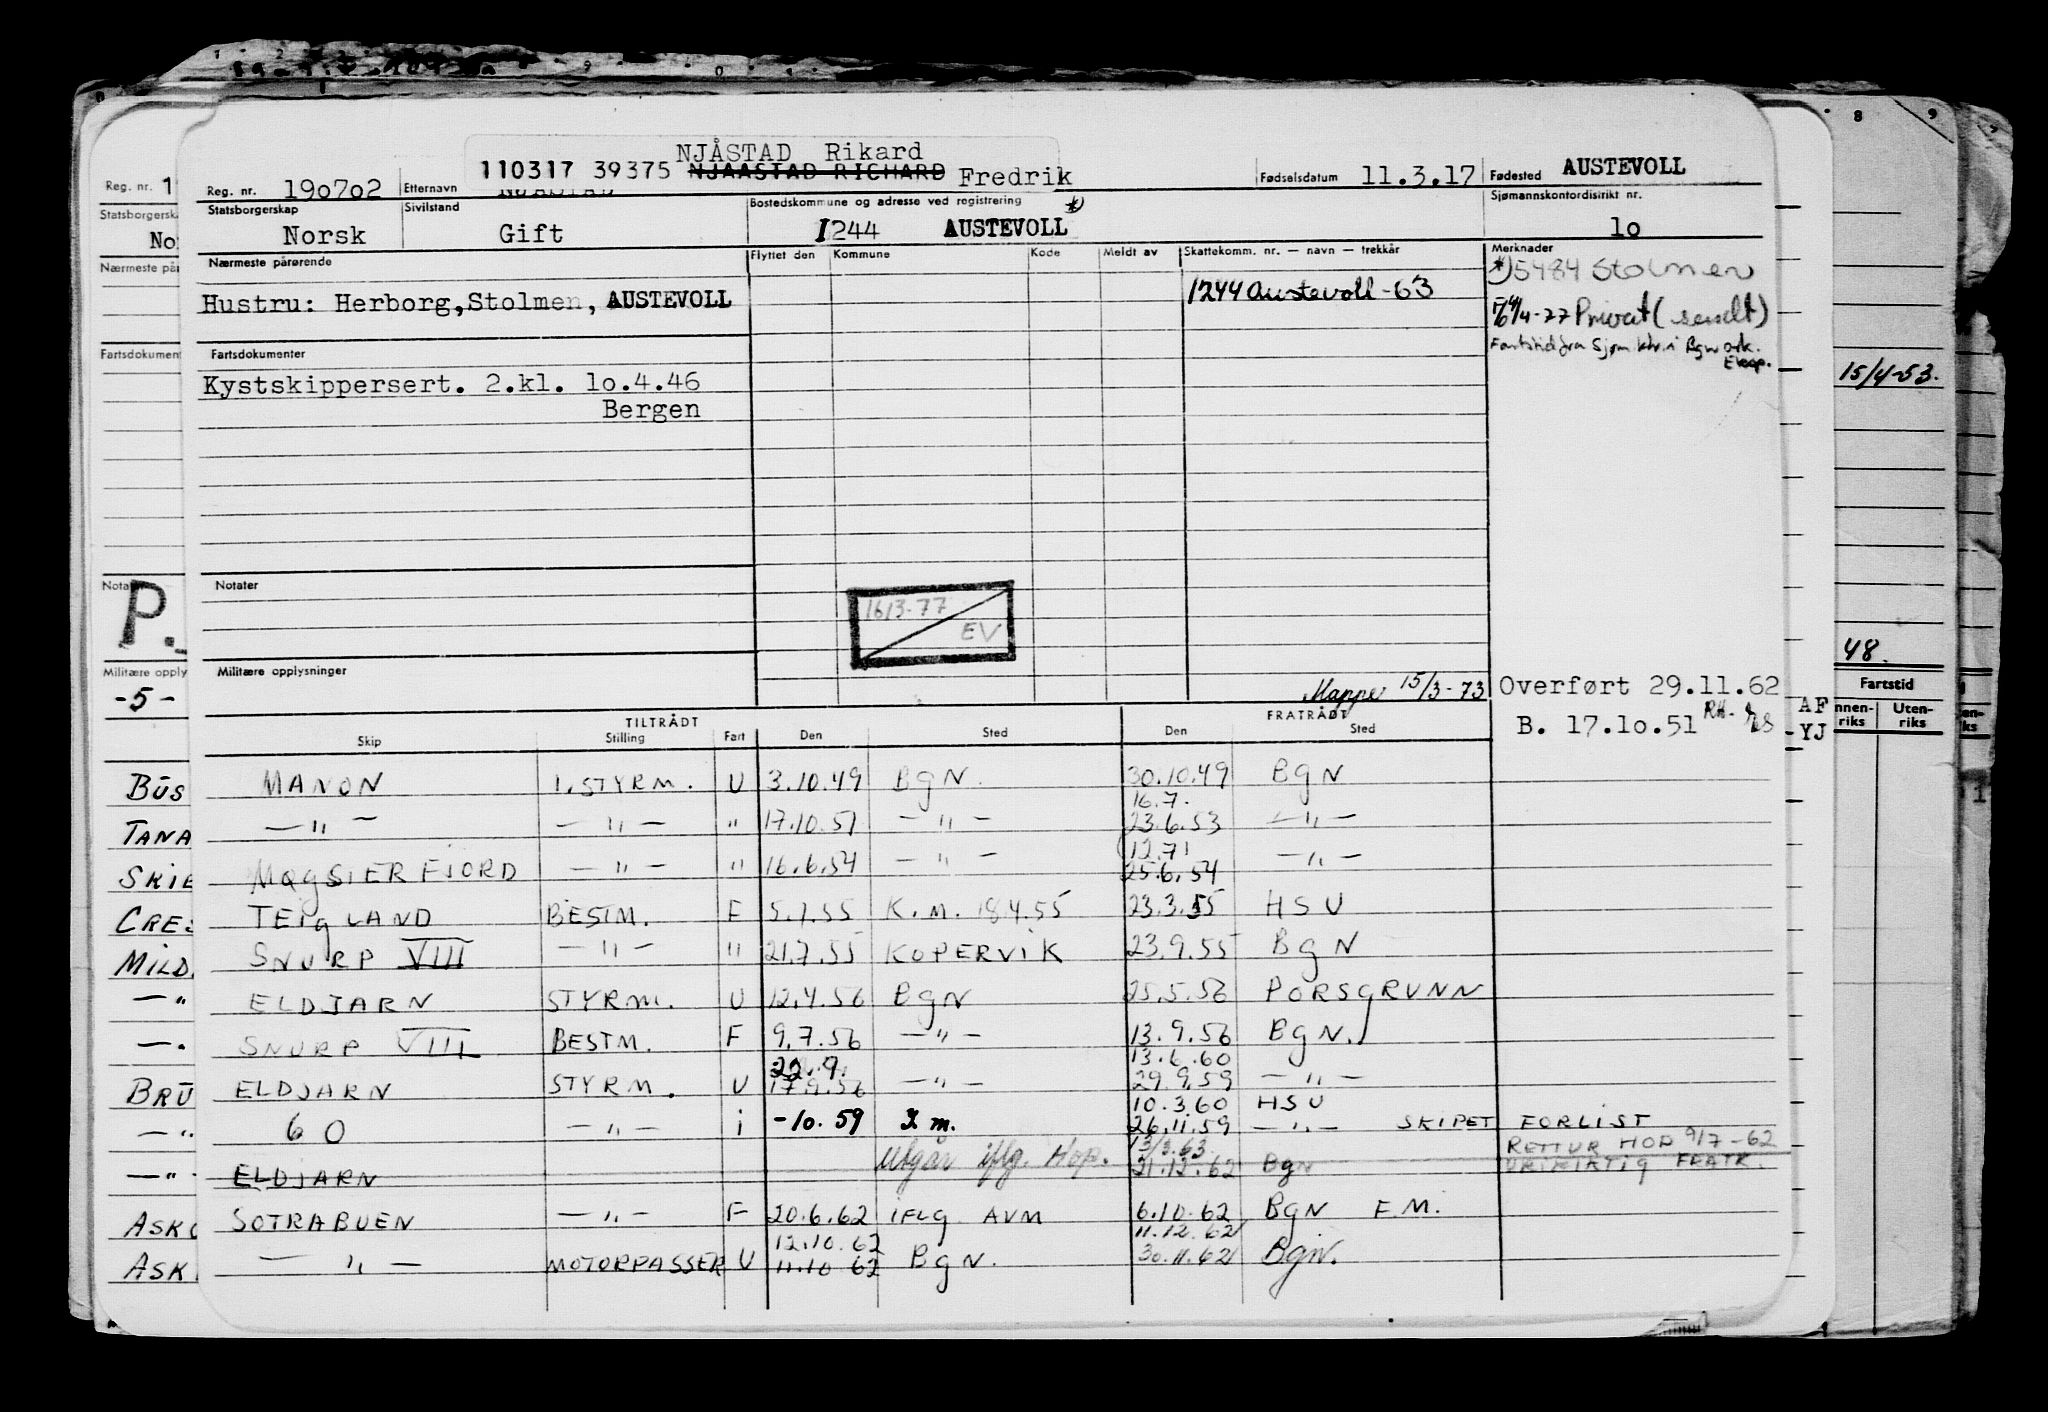 NJÅSTAD Rikard
110317 39375 NJAASTAD RICHARD Fredrik
Reg. nr. 190702 Etternavn NJÅSTAD Fødselsdatum 11.3.17 Fødested AUSTEVOLL
Statsborgerskap Sivilstand Bostedskommune og adresse ved registrering *) Sjømannskontordisirikt nr.
Norsk Gift 1244 AUSTEVOLL 10
Nærmeste pårørende Flyttet den Kommune Kode Meldt av Skattekomm. nr. — navn — trekkår Merknader
*) 5484 Stolmen
Hustru: Herborg, Stolmen, AUSTEVOLL 1244 Austevoll-63
4-77 Privat (sendt)
Fartstid fra Sjøm. ktr. i Bgn ark.
Fartsdokumenter
Kystskippersert. 2.kl. 10.4.46
Bergen
Notater
16/3-77
EV
Militære opplysninger
Mappe 15/3-73 Overført 29.11.62
B. 17.10.51
TILTRÅDT FRATRÅDT
Skip Stilling Fart Den Sted Den Sted
MANON 1. STYRM. U 3.10.49 BGN. 30.10.49 BGN
16.7.
—"— —"— " 17.10.51 —"— 23.6.53 —"—
12.71
MØGSTERFJORD —"— " 16.6.54 —"— 25.6.54 —"—
TEIGLAND BESTM. F 5.1.55 K.M. 18.4.55 23.3.55 HSU
SNURP VIII —"— " 21.7.55 KOPERVIK 23.9.55 BGN
ELDJARN STYRM. U 12.4.56 BGN 25.5.56 PORSGRUNN
SNURP VIII BESTM. F 9.7.56 —"— 13.9.56 BGN.
22.9. 13.6.60
ELDJARN STYRM. U 17.9.56 —"— 29.9.59 —"—
10.3.60 HSU
GO —"— i -10.59 X m. 26.11.59 —"— SKIPET FORLIST
13/3.63 RETTUR HOP 9/7-62
ELDJARN Utgår iflg. Hop. 21.12.62 Bgn URIKTIG FRATR.
SOTRABUEN —"— F 20.6.62 IFLG AVM 6.10.62 BGN F.M.
12.10.62 11.12.62
—"— MOTORPASSER U 11.10 62 BGN. 30.11.62 Bgn.
Reg. nr. 1
No
Fartsdokument
Nota
P.
Militære opply
-5-
BUS
TANA
SKIE
CRES
MILD
—"
—"
BRU
—"
—"
ASKO
ASK
8 9
15/4-53.
48.
Fartstid
Uten-
riks
AF
YJ